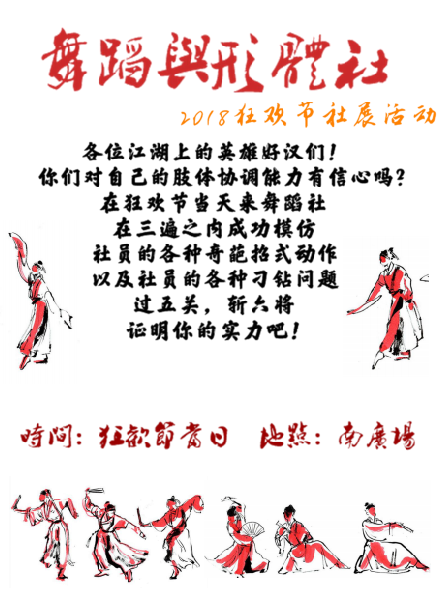 舞蹈與形體社
2018狂欢节社展活动
各位江湖上的英雄好汉们！
你们对自己的肢体协调能力有信心吗？
在狂欢节当天来舞蹈社
在三遍之内成功模仿
社员的各种奇葩招式动作
以及社员的各种刁钻问题
过五关，斩六将
证明你的实力吧！
時間：狂歡節當日 地點：南廣場